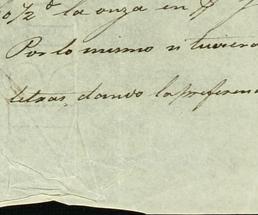 0 1/2 d la onza en
Por lo mismo si tuviera
letras, dando la preferen